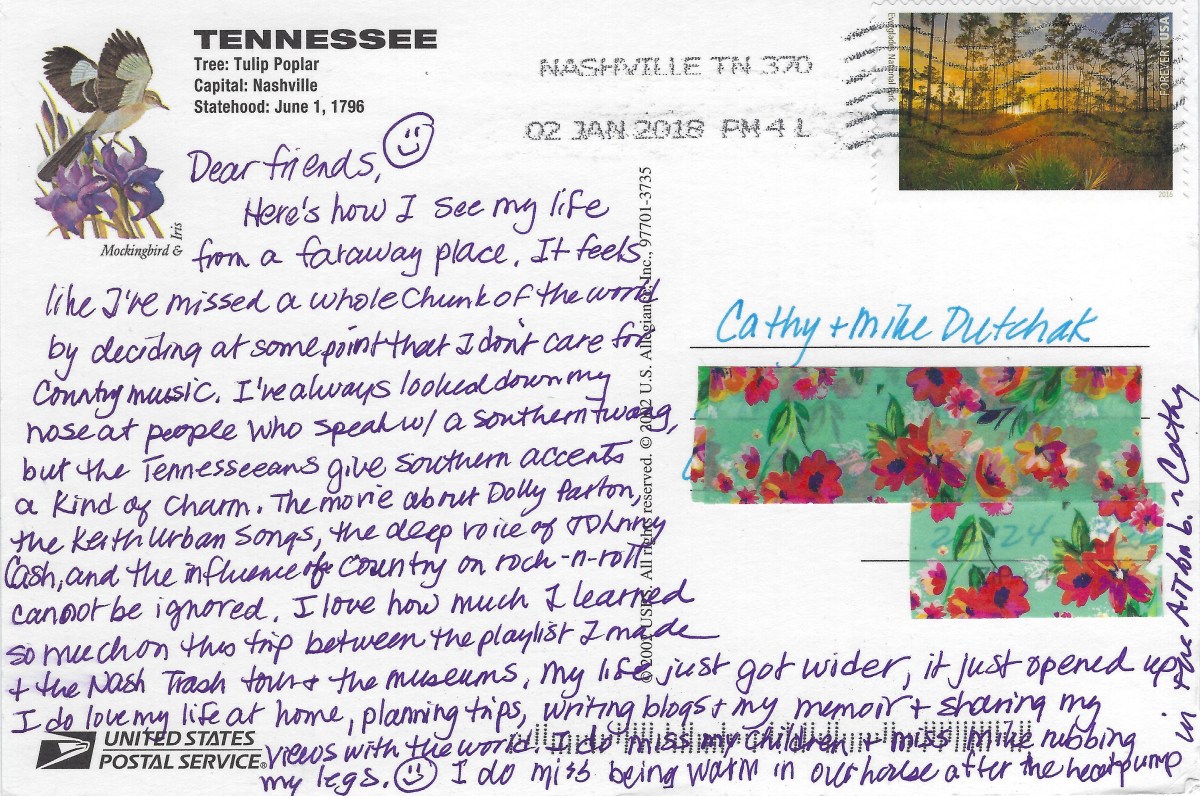 TENNESSEE
Tree: Tulip Poplar
Capital: Nashville
Statehood: June 1, 1796
Mockingbird & Iris
NASHVILLE TN 370
02 JAN 2018 PM 4 L
Everglades National Park
FOREVER USA
2016
Dear friends,
Here's how I see my life
from a faraway place. It feels
like I've missed a whole chunk of the world
by deciding at some point that I don't care for
Country music. I've always looked down my
nose at people who speak w/ a southern twang,
but the Tennesseeans give southern accents
a kind of charm. The movie about Dolly Parton,
the Keith Urban songs, the deep voice of Johnny
Cash, and the influence of country on rock-n-roll
cannot be ignored. I love how much I learned
so much on this trip between the playlist I made
+ the Nash Trash tour + the museums. My life just got wider, it just opened up.
I do love my life at home, planning trips, writing blogs + my memoir + sharing my
views with the world. I do miss my children + miss Mike rubbing
my legs. I do miss being warm in our house after the heat pump
in the Airbnb. ~ Cathy
© 2001 USPS. All rights reserved. © 2002 U.S. Allegiance, Inc., 97701-3735
Cathy + Mike Dutchak
24
UNITED STATES
POSTAL SERVICE®